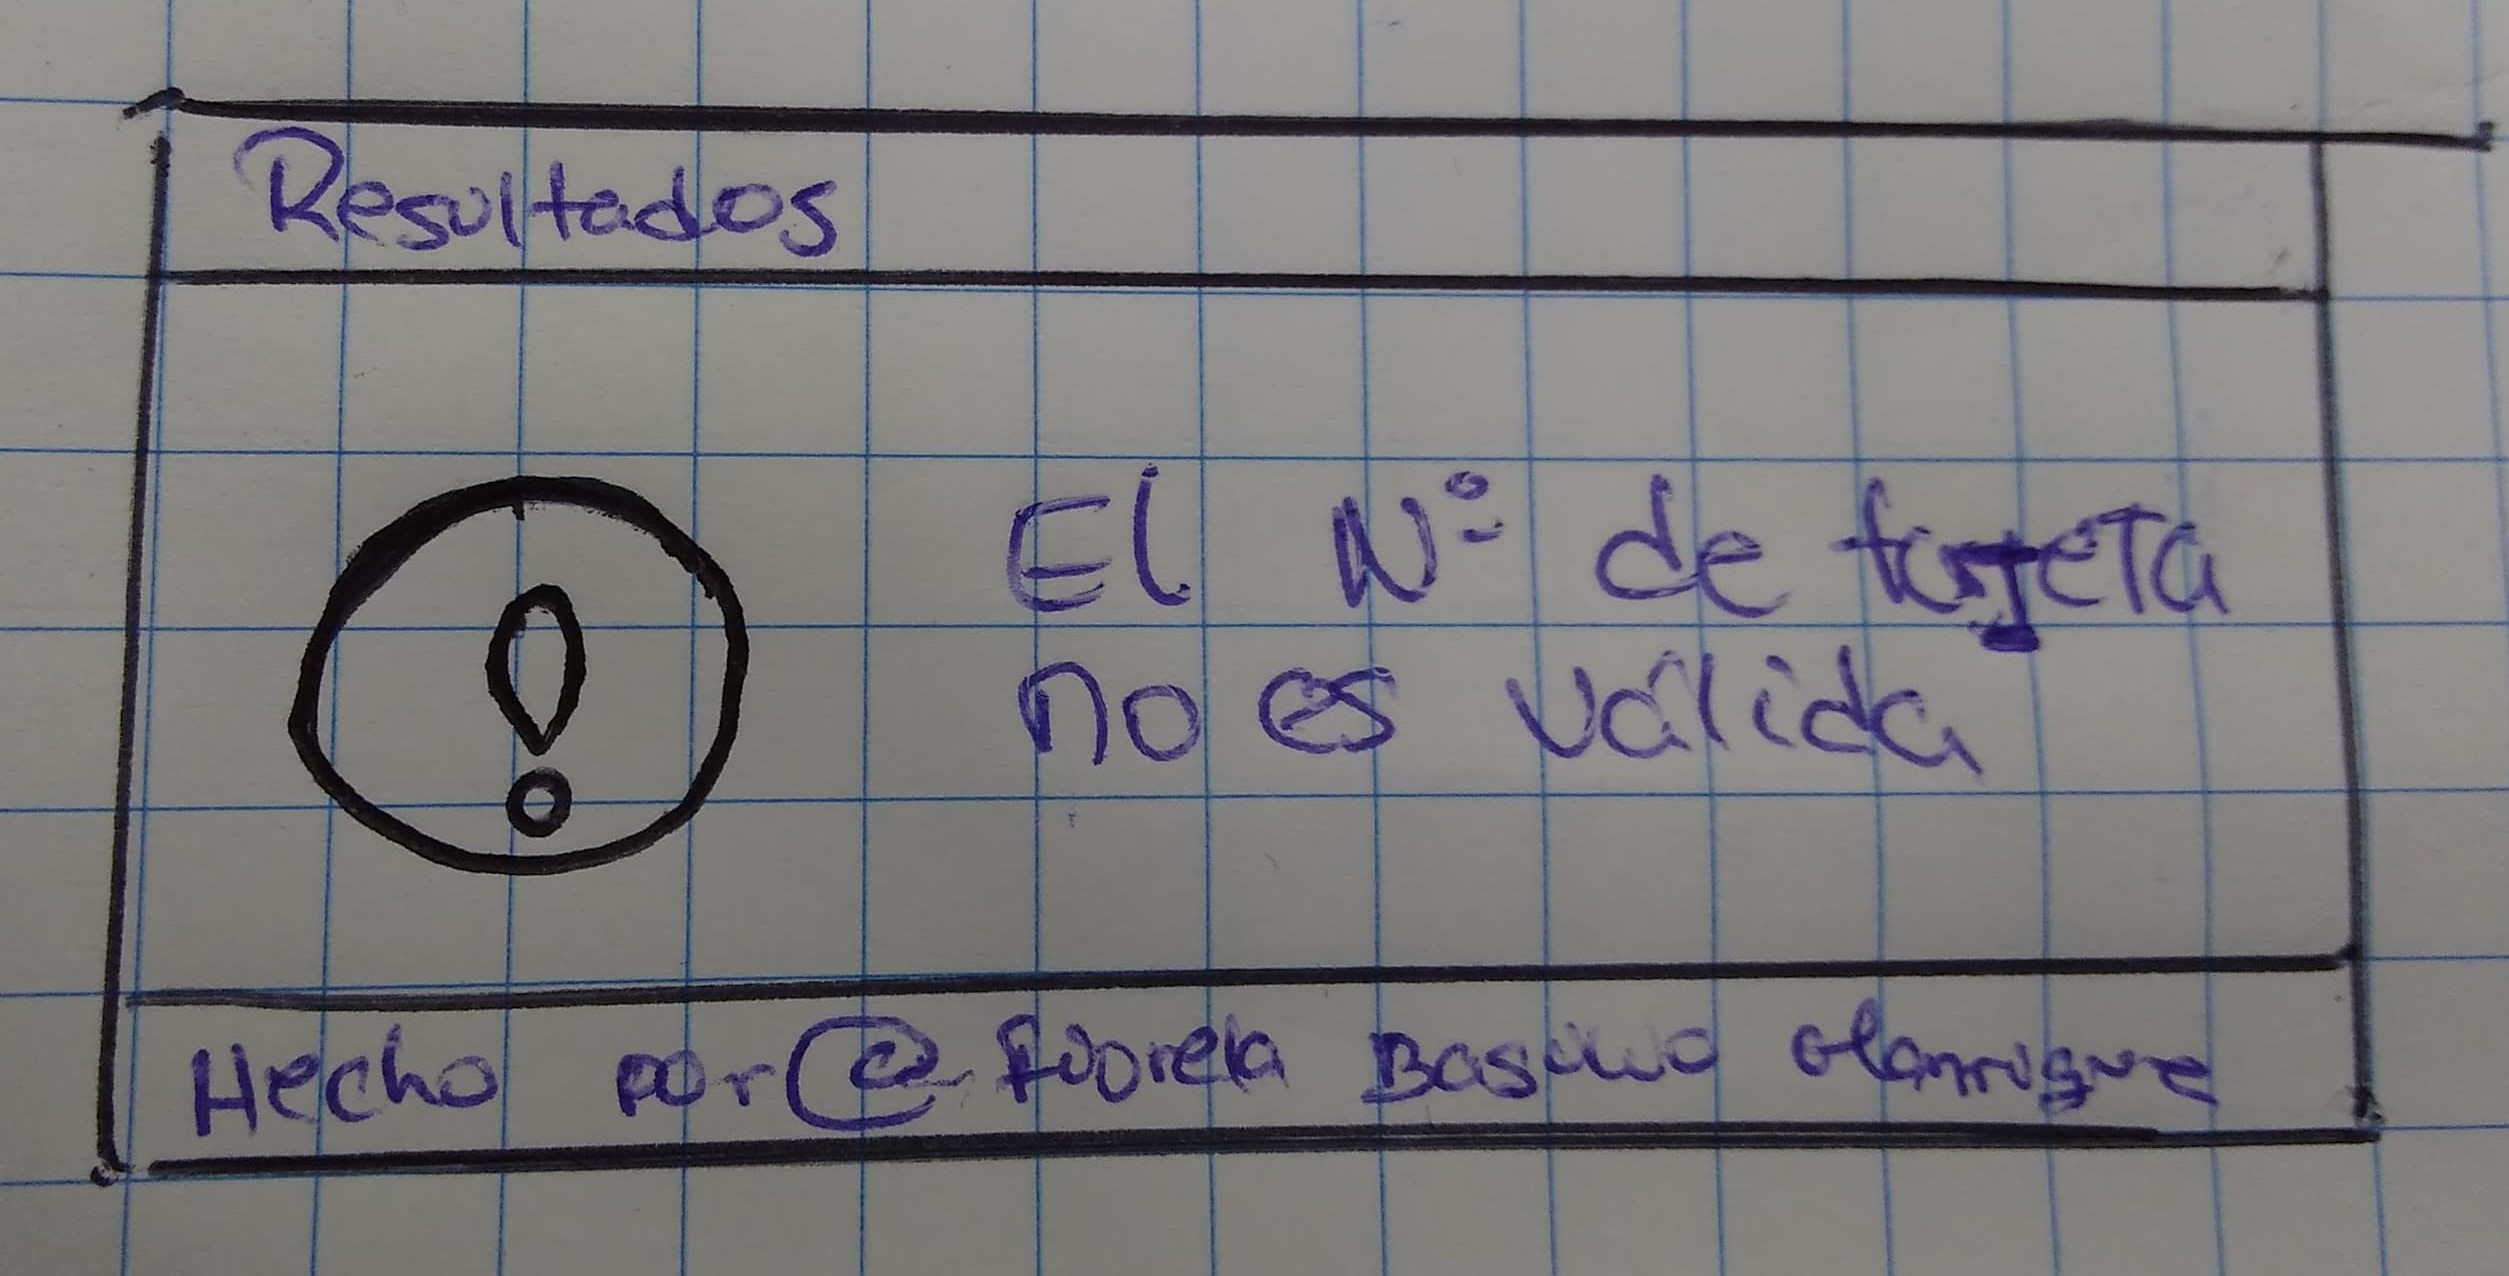 Resultados
El N° de tarjeta
no es válida
Hecho por @ Fiorela Basilio Manrique